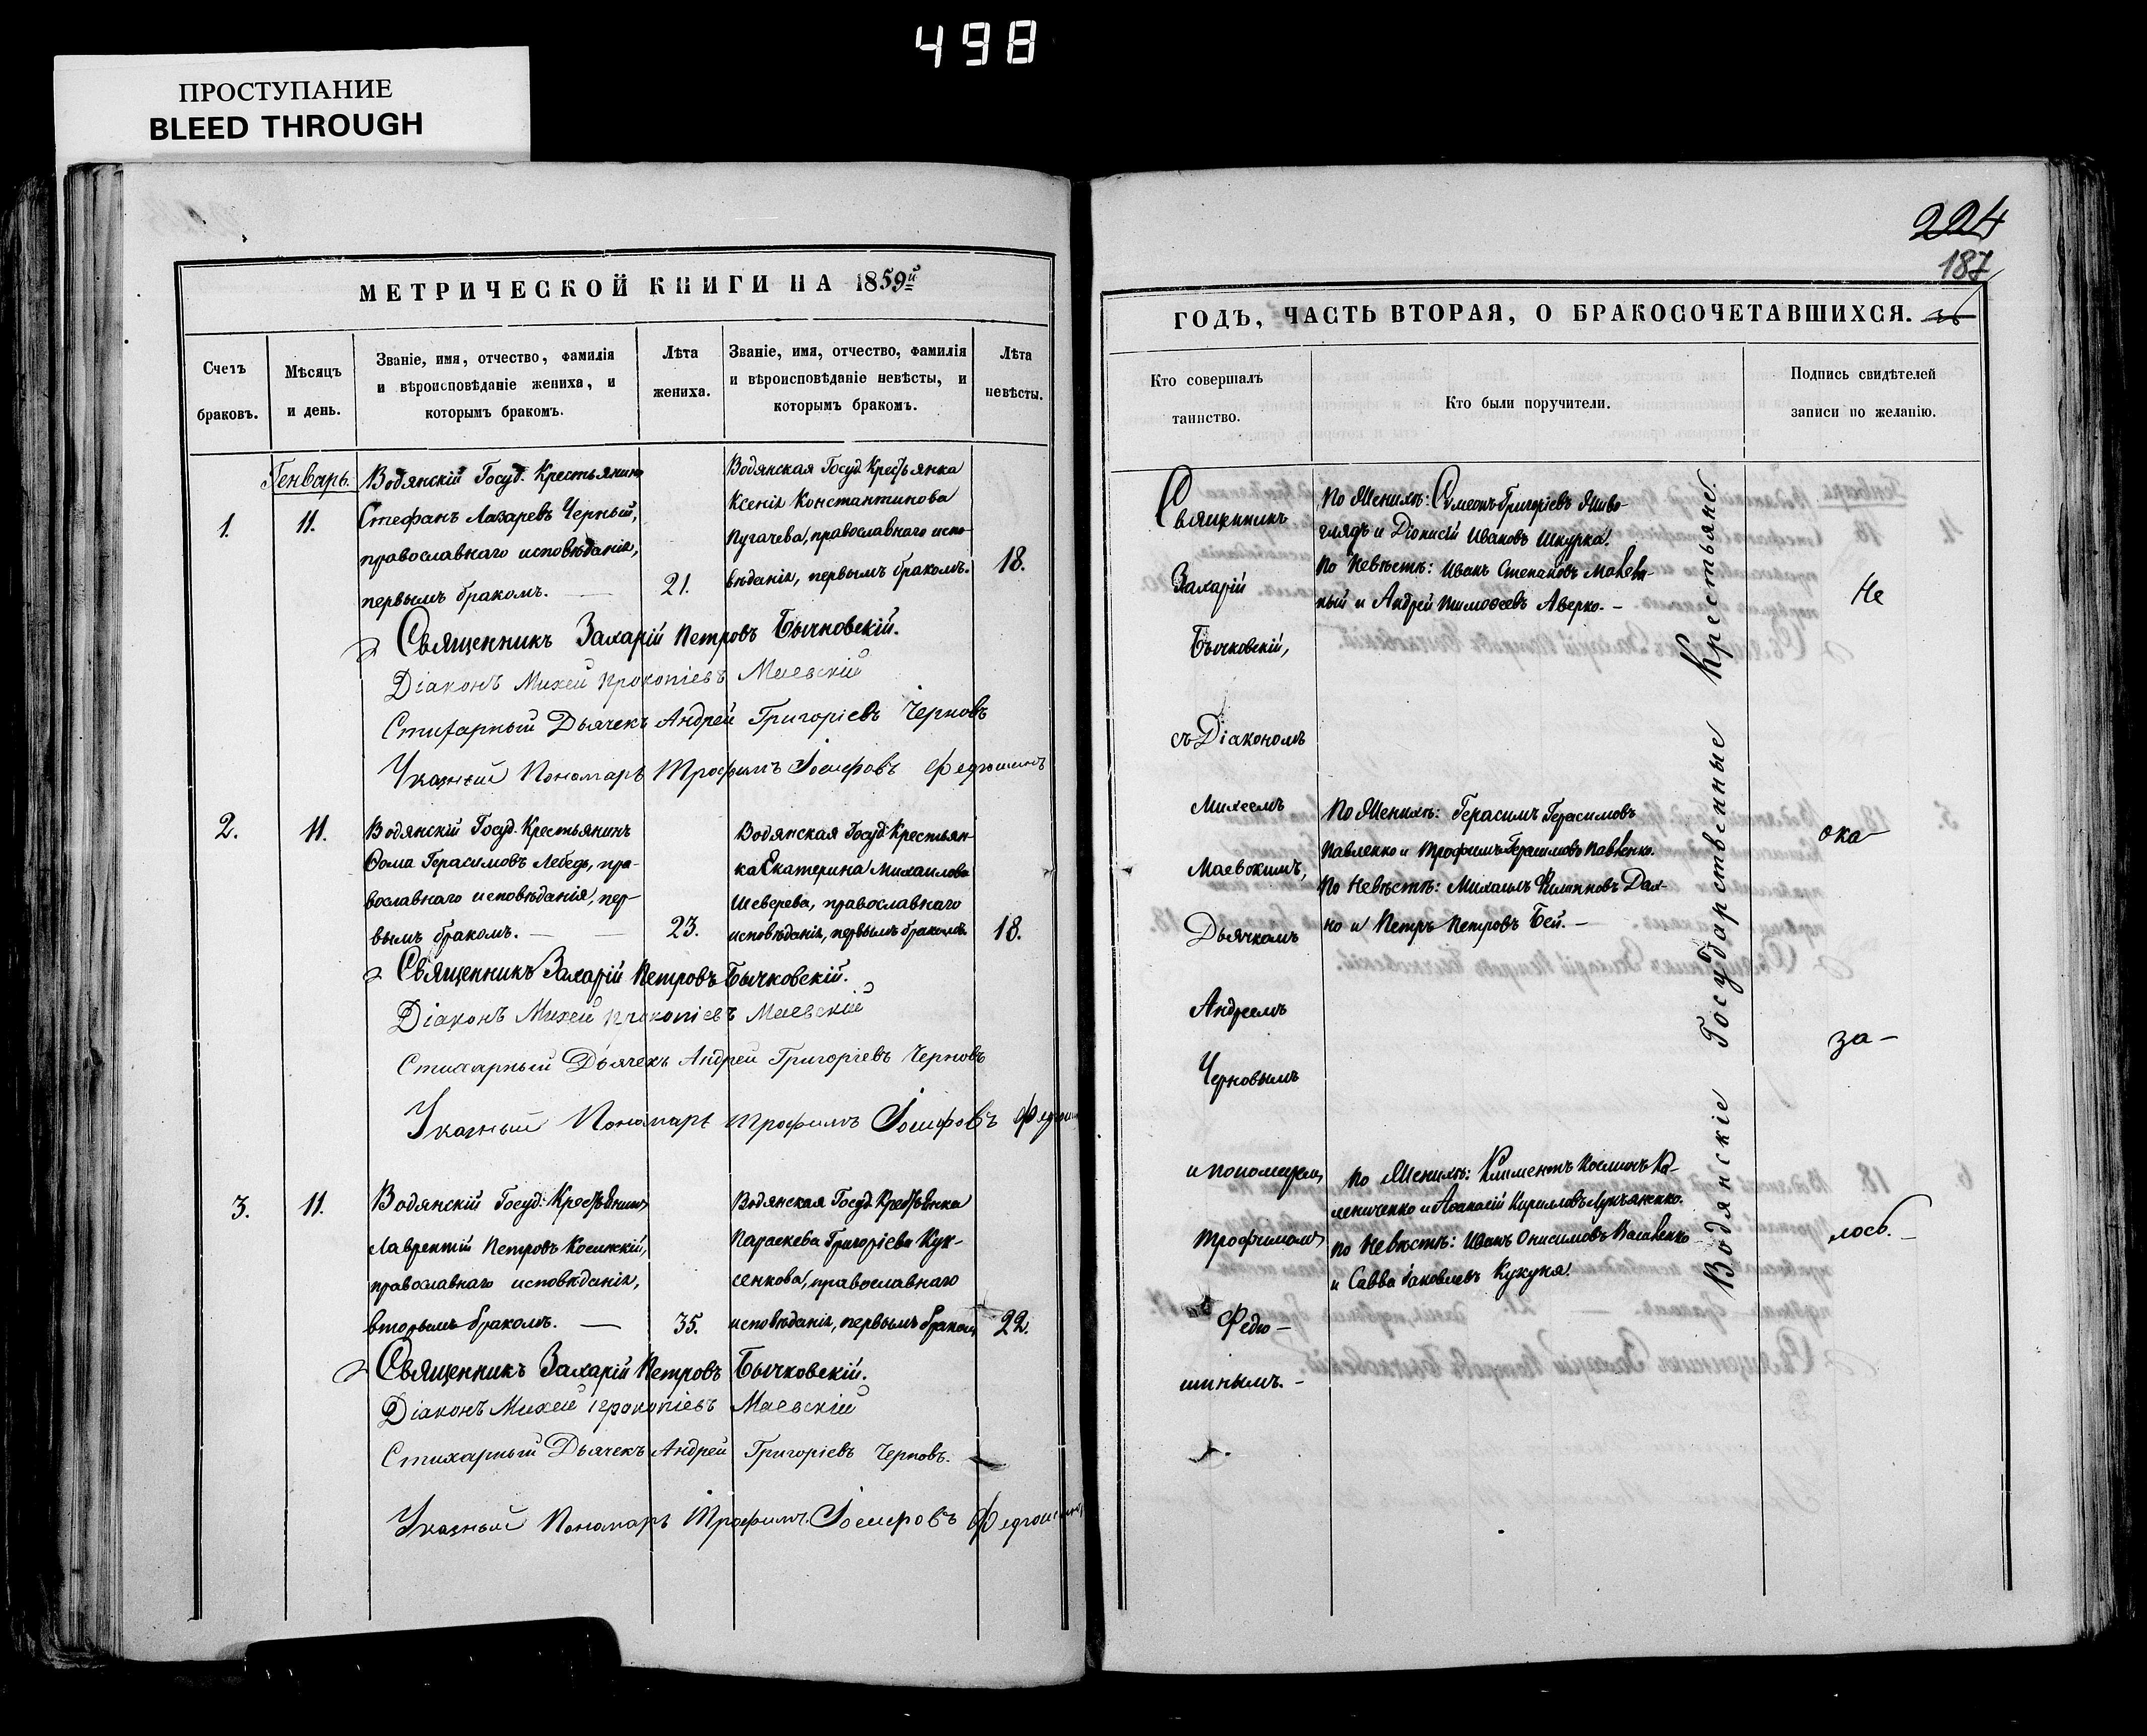 498
ПРОСТУПАНИЕ
BLEED THROUGH
МЕТРИЧЕСКОЙ КНИГИ НА 1859й
Счетъ браковъ.
Мѣсяцъ и день.
Званіе, имя, отчество, фамилія
и вѣроисповѣданіе жениха, и
которымъ бракомъ.
Лѣта жениха.
Званіе, имя, отчество, фамилія
и вѣроисповѣданіе невѣсты, и
которымъ бракомъ.
Лѣта невѣсты.
Генварь.
1.
11.
Водянскій Госуд. Крестьянинъ
Стефанъ Лазаревъ Черный,
православнаго исповѣданія,
первымъ бракомъ. —
21.
Водянская Госуд. Крестьянка
Ксенія Константинова
Пугачева, православнаго испо-
вѣданія, первымъ бракомъ.
18.
Священникъ Захарій Петровъ Бычковскій.
Діаконъ Михей Прокопіевъ Маевскій
Стихарный Дьячекъ Андрей Григоріевъ Черновъ
Указный Пономарь Трофимъ Іосифовъ Федюшинъ
2.
11.
Водянскій Госуд. Крестьянинъ
Ѳома Герасимовъ Лебедь, пра-
вославнаго исповѣданія, пер-
вымъ бракомъ. — —
23.
Водянская Госуд. Крестьян-
ка Екатерина Михаилова
Шеверева, православнаго
исповѣданія, первымъ бракомъ.
18.
Священникъ Захарій Петровъ Бычковскій.
Діаконъ Михей Прокопіевъ Маевскій
Стихарный Дьячекъ Андрей Григоріевъ Черновъ
Указный Пономарь Трофимъ Іосифовъ
3.
11.
Водянскій Госуд. Крестьянинъ
Лаврентій Петровъ
православнаго исповѣданія,
вторымъ бракомъ. —
35.
Водянская Госуд. Крестьянка
Параскева Григоріева Кук-
сенкова, православнаго
исповѣданія, первымъ бракомъ
22.
Священникъ Захарій Петровъ Бычковскій.
Діаконъ Михей Прокопіевъ Маевскій
Стихарный Дьячекъ Андрей Григоріевъ Черновъ.
Указный Пономарь Трофимъ Іосифовъ Федюшинъ
224
187
ГОДЪ, ЧАСТЬ ВТОРАЯ, О БРАКОСОЧЕТАВШИХСЯ.
Кто совершалъ таинство.
Кто были поручители.
Подпись свидѣтелей
записи по желанію.
Священникъ
Захарій
Бычковскій,
съ Діакономъ
Михеемъ
Маевскимъ,
Дьячкомъ
Андреемъ
Черновымъ
и пономаремъ
Трофимомъ
Федю-
шинымъ. -
По Женихѣ: Симеонъ Григоріевъ Живо-
глядъ и Діонисій Ивановъ Шкурка.
По Невѣстѣ: Иванъ Степановъ
и Андрей Тимоѳеевъ Аверко. -
По Женихѣ: Герасимъ Герасимовъ
Павленко и Трофимъ Герасимовъ Павленко.
По Невѣстѣ: Михаилъ Филиповъ Дах-
но и Петръ Петровъ Бей. -
По Женихѣ: Климентъ Косминъ Ка-
лениченко и Аѳанасій Кирилловъ Лукъяненко.
По Невѣстѣ: Иванъ Онисимовъ
и Савва Іаковлевъ Кукуня.
Водянскіе Государственные Крестьяне.
Не
ока
за-
лось. -